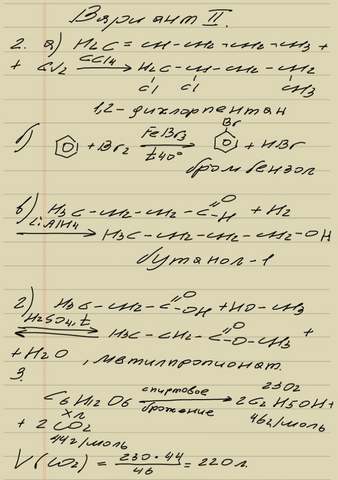 Вариант II.
2. а) H₂C = CH - CH₂ - CH₂ - CH₃ +
+ Cl₂ CCl₄ → H₂C - CH - CH₂ - CH₂
Cl Cl CH₃
1,2-дихлорпентан
Br
б) + Br₂ FeBr₃ t40° → + HBr
бромбензол
в) H₃C - CH₂ - CH₂ - C =O -H + H₂
LiAlH₄ → H₃C - CH₂ - CH₂ - CH₂ - OH
бутанол-1
г) H₃C - CH₂ - C =O -OH + HO - CH₃
H₂SO₄, t ⇄ H₃C - CH₂ - C =O -O - CH₃ +
+ H₂O , метилпропионат.
3.
230г
C₆H₁₂O₆ спиртовое брожение → 2C₂H₅OH +
хл 46г/моль
+ 2CO₂
44г/моль
V(CO₂) = 230·44 / 46 = 220л.